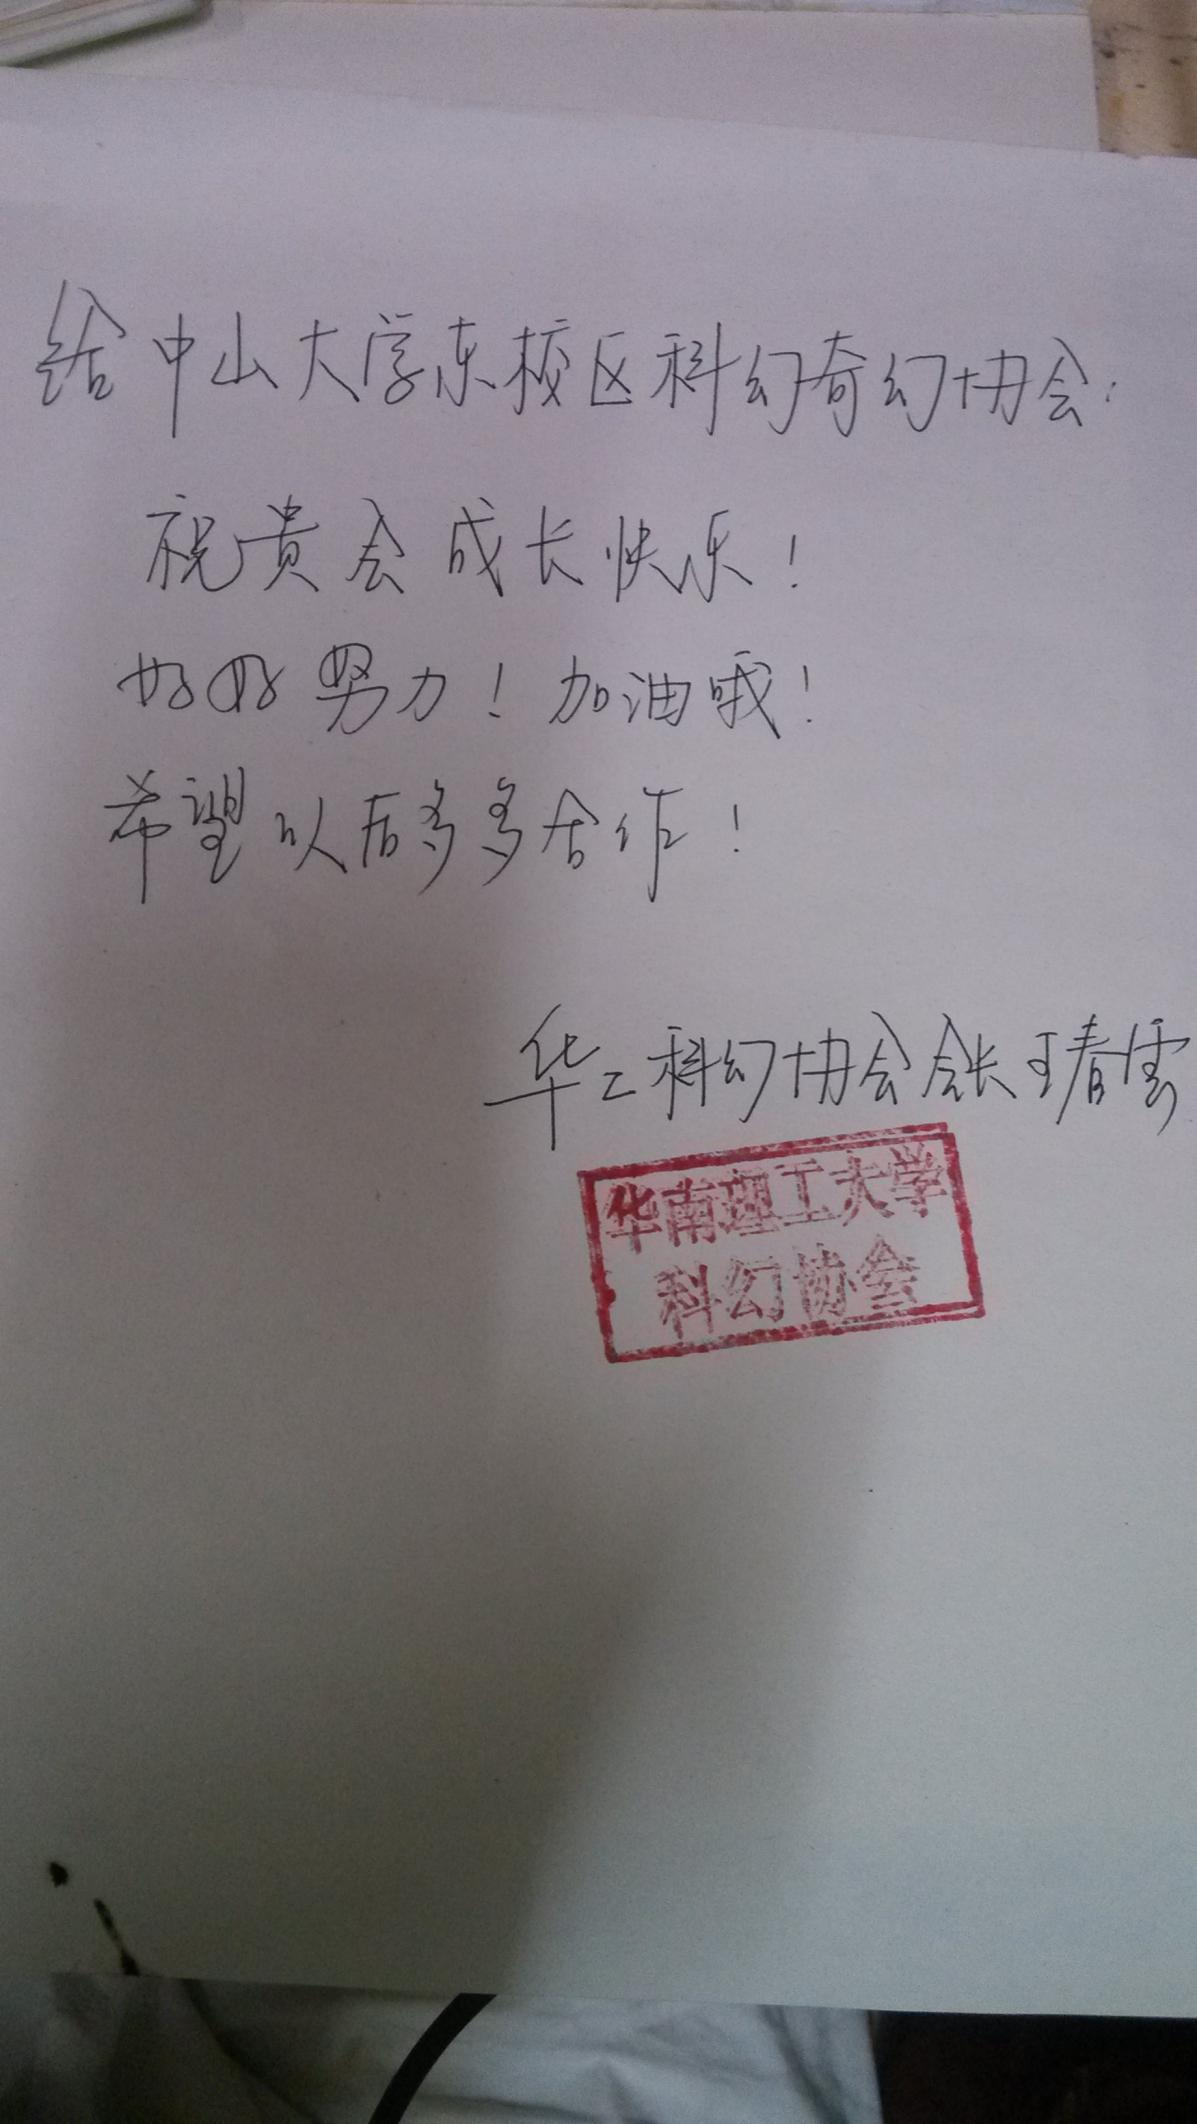 给中山大学东校区科幻奇幻协会:
祝贵会成长快乐!
好好努力!加油哦!
希望以后多多合作!
华工科幻协会会长王春雲
华南理工大学
科幻协会